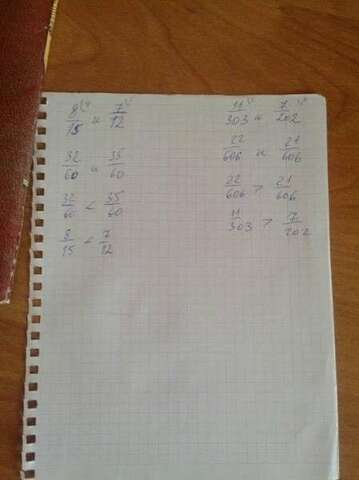 8/15 и 7/12
32/60 и 35/60
32/60 < 35/60
8/15 < 7/12
11/303 и 7/202
22/606 и 21/606
22/606 > 21/606
11/303 > 7/202